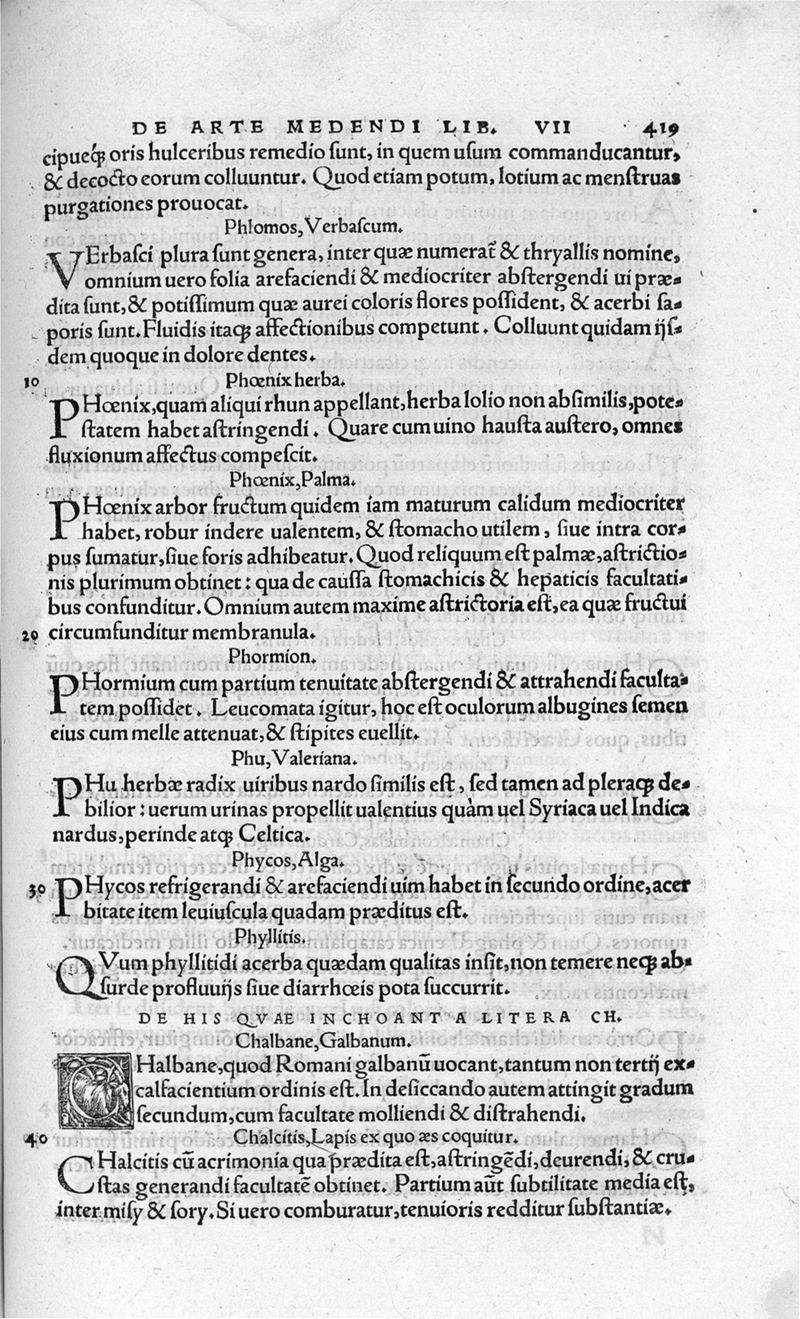 DE ARTE MEDENDI LIB. VII 419
cipueq́ꝫ oris hulceribus remedio ſunt, in quem uſum commanducantur,
& decocto eorum colluuntur. Quod etiam potum, lotium ac menſtruas
purgationes prouocat.
Phlomos, Verbaſcum.
VErbaſci plura ſunt genera, inter quæ numerat̃ & thryallis nomine,
omnium uero folia arefaciendi & mediocriter abſtergendi ui præ-
dita ſunt, & potiſſimum quæ aurei coloris flores poſſident, & acerbi ſa-
poris ſunt. Fluidis itaqꝫ affectionibus competunt. Colluunt quidam ijſ-
dem quoque in dolore dentes.
10 Phœnix herba.
PHœnix, quam aliqui rhun appellant, herba lolio non abſimilis, pote-
ſtatem habet aſtringendi. Quare cum uino hauſta auſtero, omnes
fluxionum affectus compeſcit.
Phœnix, Palma.
PHœnix arbor fructum quidem iam maturum calidum mediocriter
habet, robur indere ualentem, & ſtomacho utilem, ſiue intra cor-
pus ſumatur, ſiue foris adhibeatur. Quod reliquum eſt palmæ, aſtrictio-
nis plurimum obtinet: qua de cauſſa ſtomachicis & hepaticis facultati-
bus confunditur. Omnium autem maxime aſtrictoria eſt, ea quæ fructui
20 circumfunditur membranula.
Phormion.
PHormium cum partium tenuitate abſtergendi & attrahendi faculta-
tem poſſidet. Leucomata igitur, hoc eſt oculorum albugines ſemen
eius cum melle attenuat, & ſtipites euellit.
Phu, Valeriana.
PHu herbæ radix uiribus nardo ſimilis eſt, ſed tamen ad pleraqꝫ de-
bilior: uerum urinas propellit ualentius quàm uel Syriaca uel Indica
nardus, perinde atqꝫ Celtica.
Phycos, Alga.
30 PHycos refrigerandi & arefaciendi uim habet in ſecundo ordine, acer
bitate item leuiuſcula quadam præditus eſt.
Phyllitis.
QVum phyllitidi acerba quædam qualitas inſit, non temere neqꝫ ab-
ſurde profluuijs ſiue diarrhœis pota ſuccurrit.
DE HIS QVAE INCHOANT A LITERA CH.
Chalbane, Galbanum.
CHalbane, quod Romani galbanū uocant, tantum non tertij ex-
calfacientium ordinis eſt. In deſiccando autem attingit gradum
ſecundum, cum facultate molliendi & diſtrahendi.
40 Chalcitis, Lapis ex quo æs coquitur.
CHalcitis cū acrimonia qua prædita eſt, aſtringēdi, deurendi, & cru-
ſtas generandi facultatē obtinet. Partium aūt ſubtilitate media eſt,
inter miſy & ſory. Si uero comburatur, tenuioris redditur ſubſtantiæ.